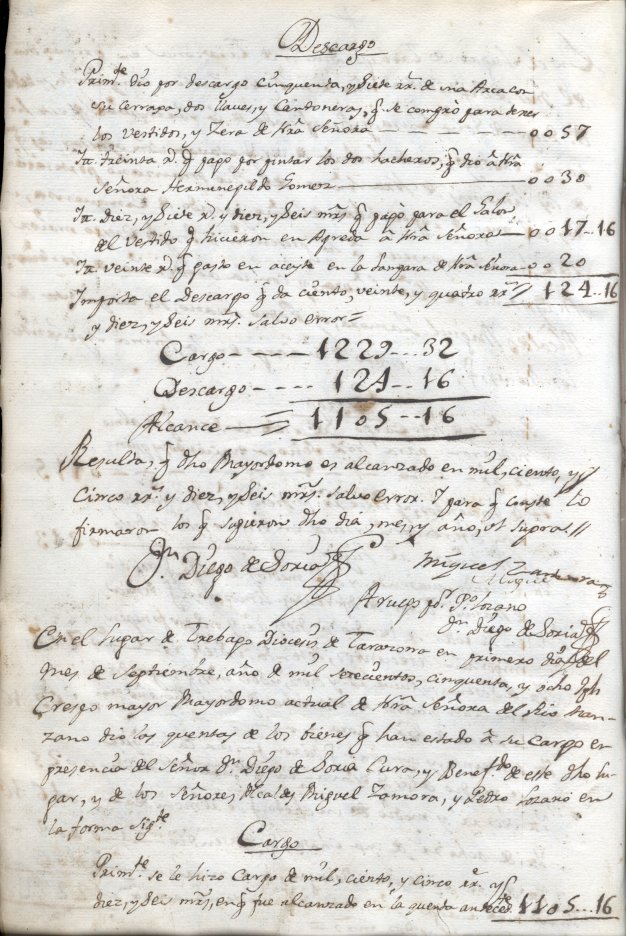 Descargo
Prim.te dio por descargo cinquenta, y Siete rr.s de una Arca con
su cerraxa, dos llaves, y Cantoneras, q̃ se compró para tener
los vestidos, y Zera de Nr̃a Señora — — — — 0 0 5 7
It. treinta r.s q̃ pagó por pintar los dos hacheros, q̃ dió a Nr̃a
Señora Hermenegildo Gomez — 0 0 3 0
It. diez, y Siete r.s y diez, y Seis mrs̃ q̃ pagó para el Galon
del vestido q̃ hicieron en Agreda a Nr̃a Señora — 0 0 17..16
It. veinte r.s q̃ gastó en aceyte en la Lampara de Nr̃a Señora 0 0 2 0
Importa el Descargo q̃ da ciento, veinte, y quatro rr.s // 124..16
y diez, y Seis mrs̃. salvo error =
Cargo — — — — 1229...32
Descargo — — — 124...16
Alcance — 1105...16
Resulta, q̃ dho Mayordomo es alcanzado en mil, ciento, y
Cinco rr.s y diez, y Seis mrs̃. salvo error. Y para q̃ conste lo
firmaron los q̃ supieron dho dia, mes, y año, ut supra //
Dn. Diego de Soria
Miguel Zamora
A ruego p.r P.o Lozano
Dn Diego de Soria
En el lugar de Trebago Diocesis de Tarazona en primero dia del
Mes de Septiembre, año de mil setecientos, cinquenta, y ocho Jph
Crespo mayor Mayordomo actual de Nr̃a Señora del Rio Man-
zano dio las quentas de los bienes q̃ han estado a su cargo en
presencia del Señor Dn. Diego de Soria Cura, y Benef.do de este dho lu-
gar, y de los Señores Alcaldes Miguel Zamora, y Pedro Lozano en
la forma sig.te
Cargo
Prim.te se le hizo Cargo de mil, ciento, y cinco rr.s y
diez, y Seis mrs̃, en q̃ fue alcanzado en la quenta anteced.te 1105...16